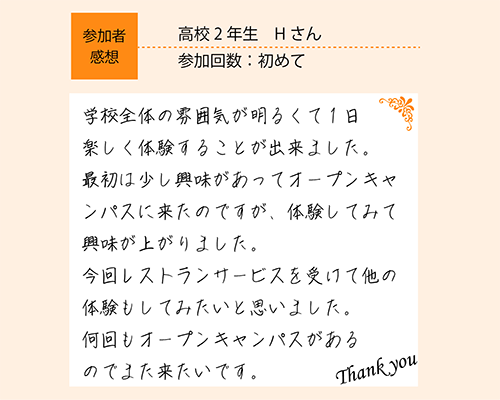 参加者
感想
高校2年生　Hさん
参加回数：初めて
学校全体の雰囲気が明るくて1日
楽しく体験することが出来ました。
最初は少し興味があってオープンキャ
ンパスに来たのですが、体験してみて
興味が上がりました。
今回レストランサービスを受けて他の
体験もしてみたいと思いました。
何回もオープンキャンパスがある
のでまた来たいです。
Thank you